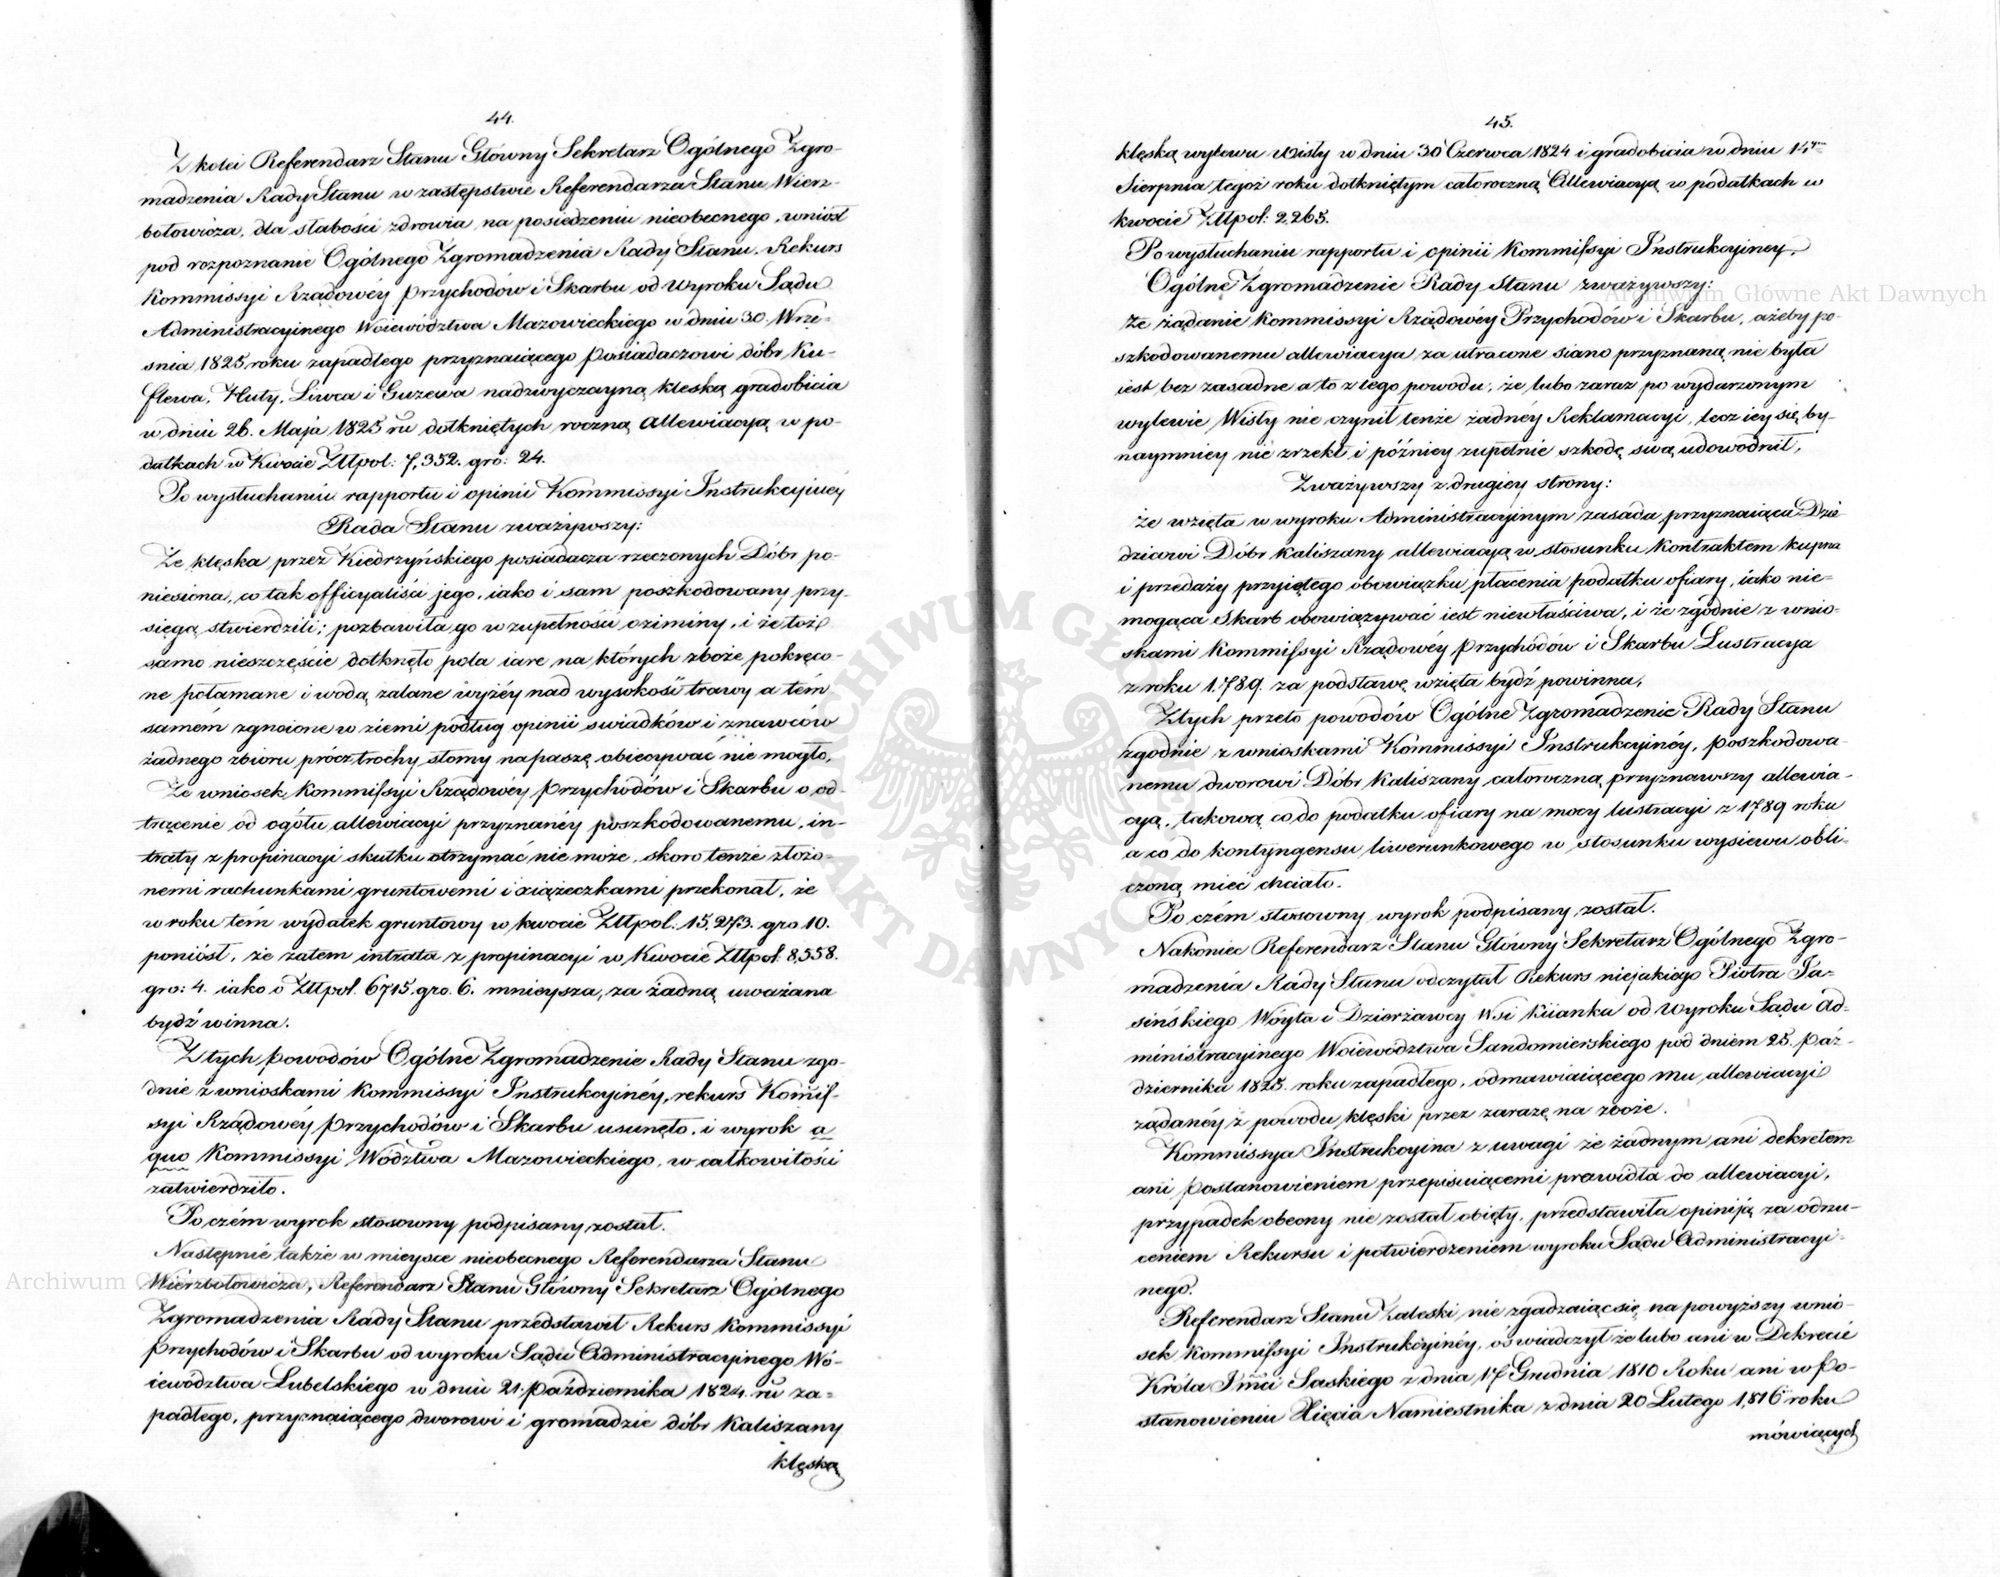 44.
Z kolei Referendarz Stanu Główny Sekretarz Ogólnego Zgro-
madzenia Rady Stanu w zastępstwie Referendarza Stanu Wierz-
bołowicza, dla słabości zdrowia na posiedzeniu nieobecnego, wniósł
pod rozpoznanie Ogólnego Zgromadzenia Rady Stanu, Rekurs
Kommissyi Rządowéy Przychodów i Skarbu od Wyroku Sądu
Administracyinego Woiewództwa Mazowieckiego w dniu 30. Wrze-
snia 1825 roku zapadłego przyznaiącego Posiadaczowi dóbr Ku-
flewa, Huty, Liwca i Guzewa nadzwyczayną klęską gradobicia
w dniu 26. Maja 1825 ru dotkniętych roczną allewiacyą w po-
datkach w Kwocie Złtpol: 7,352. gro: 24.
Po wysłuchaniu rapportu i opinii Kommissyi Instrukcyiney
Rada Stanu zważywszy:
Że klęska przez Kiedrzyńskiego posiadacza rzeczonych Dóbr po-
niesiona, co tak officyaliści jego, iako i sam poszkodowany przy-
sięgą stwierdzili; pozbawiła go w zupełności oziminy, i że toż
samo nieszczęście dotknęło pola iare na których zboże pokręco-
ne połamane i wodą zalane wyżéy nad wysokość trawy a tém
samém zgnoione w ziemi podług opinii swiadków i znawców
żadnego zbioru prócz trochy słomy na paszę obiecywać nie mogło,
Że wniosek Kommissyi Rządowéy Przychodów i Skarbu o od-
trącenie od ogółu allewiacyi przyznanéy poszkodowanemu, in-
traty z propinacyi skutku otrzymać nie może, skoro tenże złożo-
nemi rachunkami gruntowemi i xiążeczkami przekonał, że
w roku tém wydatek gruntowy w kwocie Złtpol: 15,273. gro 10.
poniósł, że zatem intrata z propinacyi w Kwocie Złtpol: 8,558.
gro: 4. iako o Złtpol. 6715. gro. 6. mnieysza, za żadną uważana
bydź winna.
Z tych powodów Ogólne Zgromadzenie Rady Stanu zgo-
dnie z wnioskami Kommissyi Instrukcyinéy, rekurs Komis-
syi Rządowéy Przychodów i Skarbu usunęło, i wyrok a
quo Kommissyi Wództwa Mazowieckiego, w całkowitości
zatwierdziło.
Po czém wyrok stosowny podpisany został.
Następnie także w mieysce nieobecnego Referendarza Stanu
Wierzbołowicza, Referendarz Stanu Główny Sekretarz Ogólnego
Zgromadzenia Rady Stanu przedstawił Rekurs Kommissyi
Przychodów i Skarbu od wyroku Sądu Administracyinego Wo-
iewództwa Lubelskiego w dniu 21. Października 1824 ru za-
padłego, przyznaiącego dworowi i gromadzie dóbr Kaliszany
klęską
45.
klęską wylewu Wisły w dniu 30 Czerwca 1824 i gradobicia w dniu
Sierpnia tegoż roku dotkniętym całoroczną Allewiacyą w podatkach w
kwocie Złtpol: 2,265.
Po wysłuchaniu rapportu i opinii Kommissyi Instrukcyiney,
Ogólne Zgromadzenie Rady Stanu zważywszy:
Że żądanie Kommissyi Rządowéy Przychodów i Skarbu, ażeby po-
szkodowanemu allewiacya za utracone siano przyznaną nie była
iest bez zasadne a to z tego powodu, że lubo zaraz po wydarzonym
wylewie Wisły nie czynił tenże żadnéy Reklamacyi, lecz iey się by-
naymniey nie zrzekł i późniey zupełnie szkodę swą udowodnił,
Zważywszy z drugiey strony:
że wzięta w wyroku Administracyinym zasada przyznaiąca Dzie-
dzicowi Dóbr Kaliszany allewiacyą w stosunku Kontraktem kupna
i przedaży przyiętego obowiązku płacenia podatku ofiary, iako nie-
mogąca Skarb obowiązywać iest niewłaściwa, i że zgodnie z wnio-
skami Kommissyi Rządowéy Przychodów i Skarbu Lustracya
z roku 1789. za podstawę wzięta bydź powinna,
Z tych przeto powodów Ogólne Zgromadzenie Rady Stanu
zgodnie z wnioskami Kommissyi Instrukcyinéy, poszkodowa-
nemu dworowi Dóbr Kaliszany całoroczną przyznawszy allewia-
cyą, takową co do podatku ofiary na mocy lustracyi z 1789 roku
a co do kontyngensu liwerunkowego w stosunku wysiewu obli-
czoną mieć chciało.
Po czém stosowny wyrok podpisany został.
Nakoniec Referendarz Stanu Główny Sekretarz Ogólnego Zgro-
madzenia Rady Stanu odczytał Rekurs niejakiego Piotra Ja-
sińskiego Wóyta i Dzierżawcy Wsi Kiianka od Wyroku Sądu Ad-
ministracyinego Woiewództwa Sandomierskiego pod dniem 25. Paź-
dziernika 1825. roku zapadłego, odmawiaiącego mu allewiacyi
żądanéy z powodu klęski przez zarazę na zboże.
Kommissya Instrukcyina z uwagi że żadnym ani dekretem
ani Postanowieniem przepisuiącemi prawidła do allewiacyi,
przypadek obecny nie został obięty, przedstawiła opiniją za odrzu-
ceniem Rekursu i potwierdzeniem wyroku Sądu Administracyi-
nego.
Referendarz Stanu Zaleski nie zgadzaiąc się na powyższy wnio-
sek Kommissyi Instrukcyinéy, oświadczył że lubo ani w Dekrecie
Króla Jmci Saskiego z dnia 17 Grudnia 1810 Roku ani w Po-
stanowieniu Xięcia Namiestnika z dnia 20 Lutego 1816 roku
mówiących
Archiwum Główne Akt Dawnych
Archiwum Główne Akt Dawnych
ARCHIWUM GŁÓWNE AKT DAWNYCH